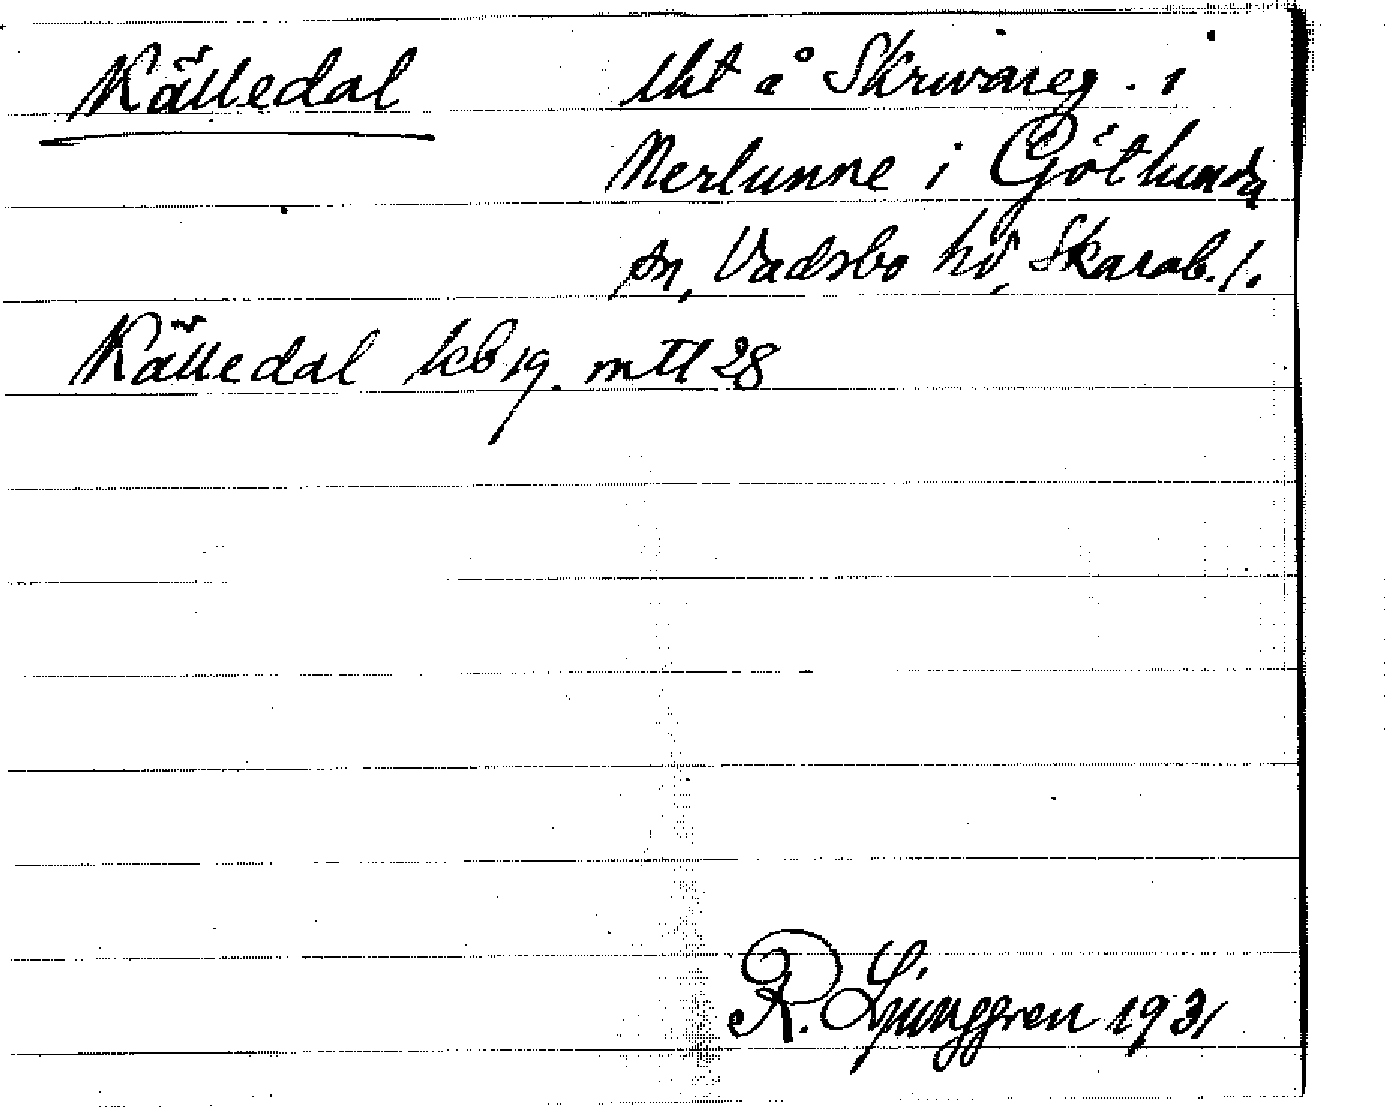 Källedal lht å Skrivareg. i
Nerlunne i Götlunda
sn, Vadsbo hd, Skarab. l.
Källedal kb 19. mtl 28
R. Ljunggren 1931